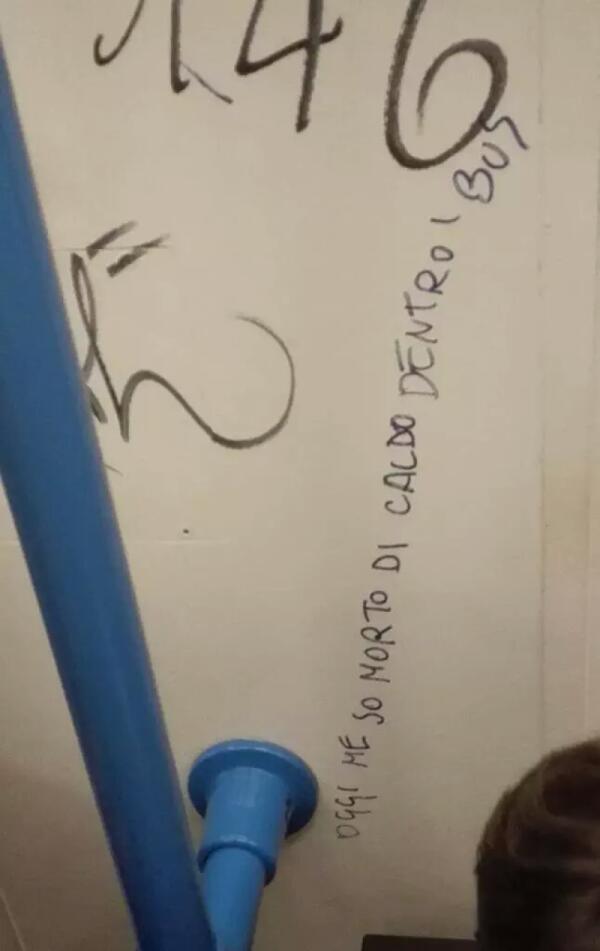 46
OGGI ME SO MORTO DI CALDO DENTRO I BUS